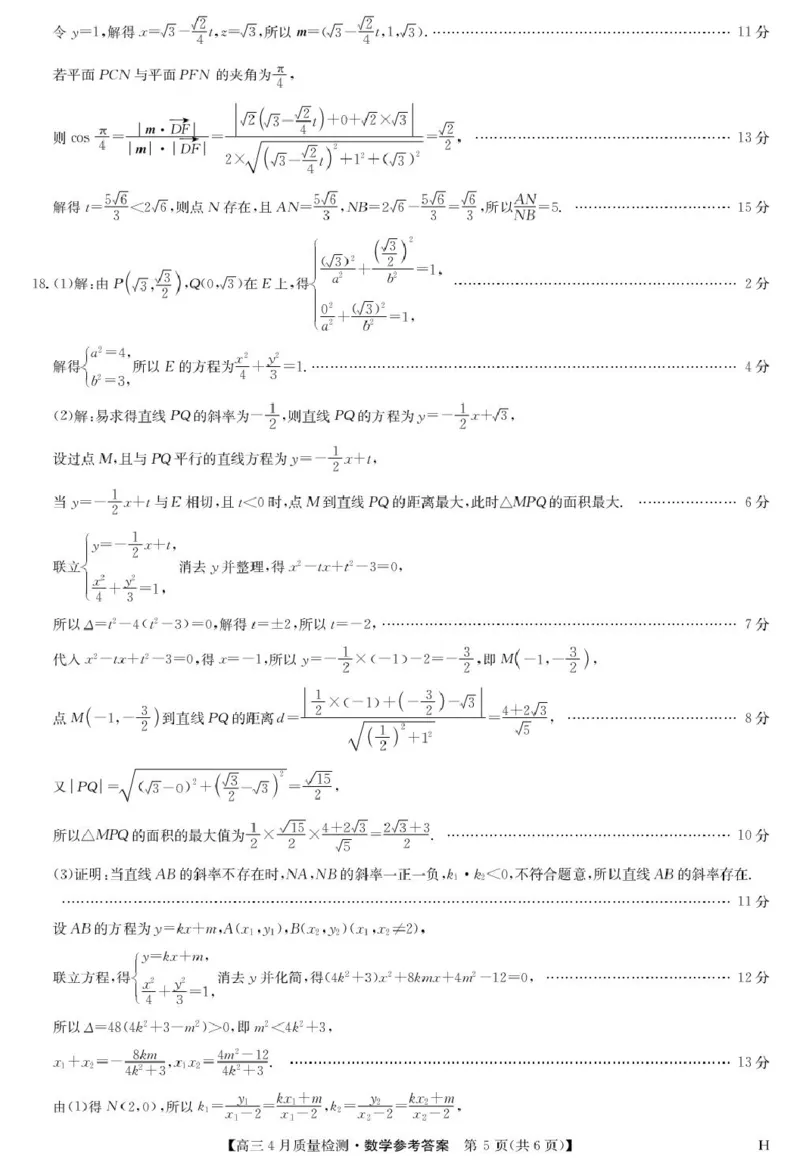 令 y=1,解得 x=√3-(√2/4)t,z=√3,所以 m=(√3-(√2/4)t,1,√3). …… 11 分
若平面 PCN 与平面 PFN 的夹角为 π/4,
则 cos π/4=|m·DF|/(|m|·|DF|)=|√2(√3-(√2/4)t)+0+√2×√3|/(2×√((√3-(√2/4)t)²+1²+(√3)²))=√2/2, …… 13 分
解得 t=5√6/3<2√6,则点 N 存在,且 AN=5√6/3,NB=2√6-5√6/3=√6/3,所以AN/NB=5. …… 15 分
18.(1)解:由 P(√3,√3/2),Q(0,√3)在 E 上,得{(√3)²/a²+(√3/2)²/b²=1, 0²/a²+(√3)²/b²=1, …… 2 分
解得{a²=4, b²=3,所以 E 的方程为x²/4+y²/3=1. …… 4 分
(2)解:易求得直线 PQ的斜率为-1/2,则直线 PQ的方程为 y=-1/2x+√3,
设过点 M,且与 PQ 平行的直线方程为 y=-1/2x+t,
当 y=-1/2x+t 与E 相切,且 t<0 时,点 M 到直线 PQ 的距离最大,此时△MPQ的面积最大. …… 6 分
联立{y=-1/2x+t, x²/4+y²/3=1, 消去 y 并整理,得 x²-tx+t²-3=0,
所以 Δ=t²-4(t²-3)=0,解得 t=±2,所以 t=-2, …… 7 分
代入 x²-tx+t²-3=0,得 x=-1,所以 y=-1/2×(-1)-2=-3/2,即 M(-1,-3/2),
点 M(-1,-3/2)到直线 PQ 的距离 d=|1/2×(-1)+(-3/2)-√3|/√((1/2)²+1²)=(4+2√3)/√5, …… 8 分
又|PQ|=√((√3-0)²+(√3/2-√3)²)=√15/2,
所以△MPQ 的面积的最大值为1/2×√15/2×(4+2√3)/√5=(2√3+3)/2. …… 10 分
(3)证明:当直线 AB 的斜率不存在时,NA,NB 的斜率一正一负,k₁·k₂<0,不符合题意,所以直线 AB 的斜率存在.
…… 11 分
设 AB 的方程为 y=kx+m,A(x₁,y₁),B(x₂,y₂)(x₁,x₂≠2),
联立方程,得{y=kx+m, x²/4+y²/3=1, 消去 y 并化简,得(4k²+3)x²+8kmx+4m²-12=0, …… 12 分
所以 Δ=48(4k²+3-m²)>0,即 m²<4k²+3,
x₁+x₂=-8km/(4k²+3),x₁x₂=(4m²-12)/(4k²+3). …… 13 分
由(1)得 N(2,0),所以 k₁=y₁/(x₁-2)=(kx₁+m)/(x₁-2),k₂=y₂/(x₂-2)=(kx₂+m)/(x₂-2),
【高三 4 月质量检测·数学参考答案 第 5 页(共 6 页)】 H